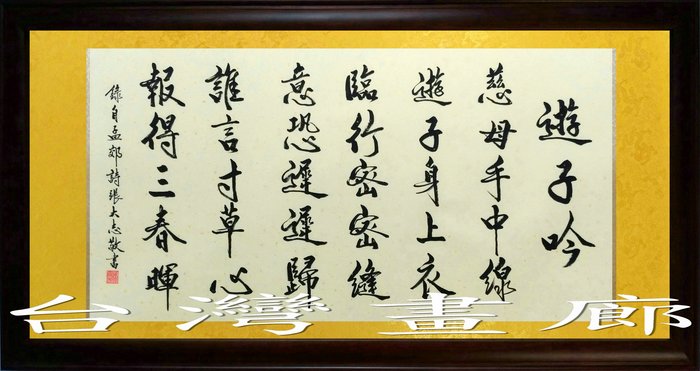 遊子吟
慈母手中線
遊子身上衣
臨行密密縫
意恐遲遲歸
誰言寸草心
報得三春暉
錄自孟郊詩張大志敬書
台灣畫廊